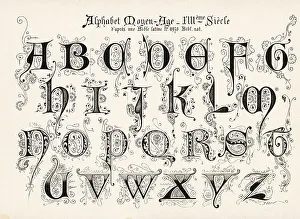 Alphabet Moyen-Age - XIIIème Siècle
d'après une Bible latine
A B C D E F G
H I J K L M
N O P Q R S T
U V W X Y Z